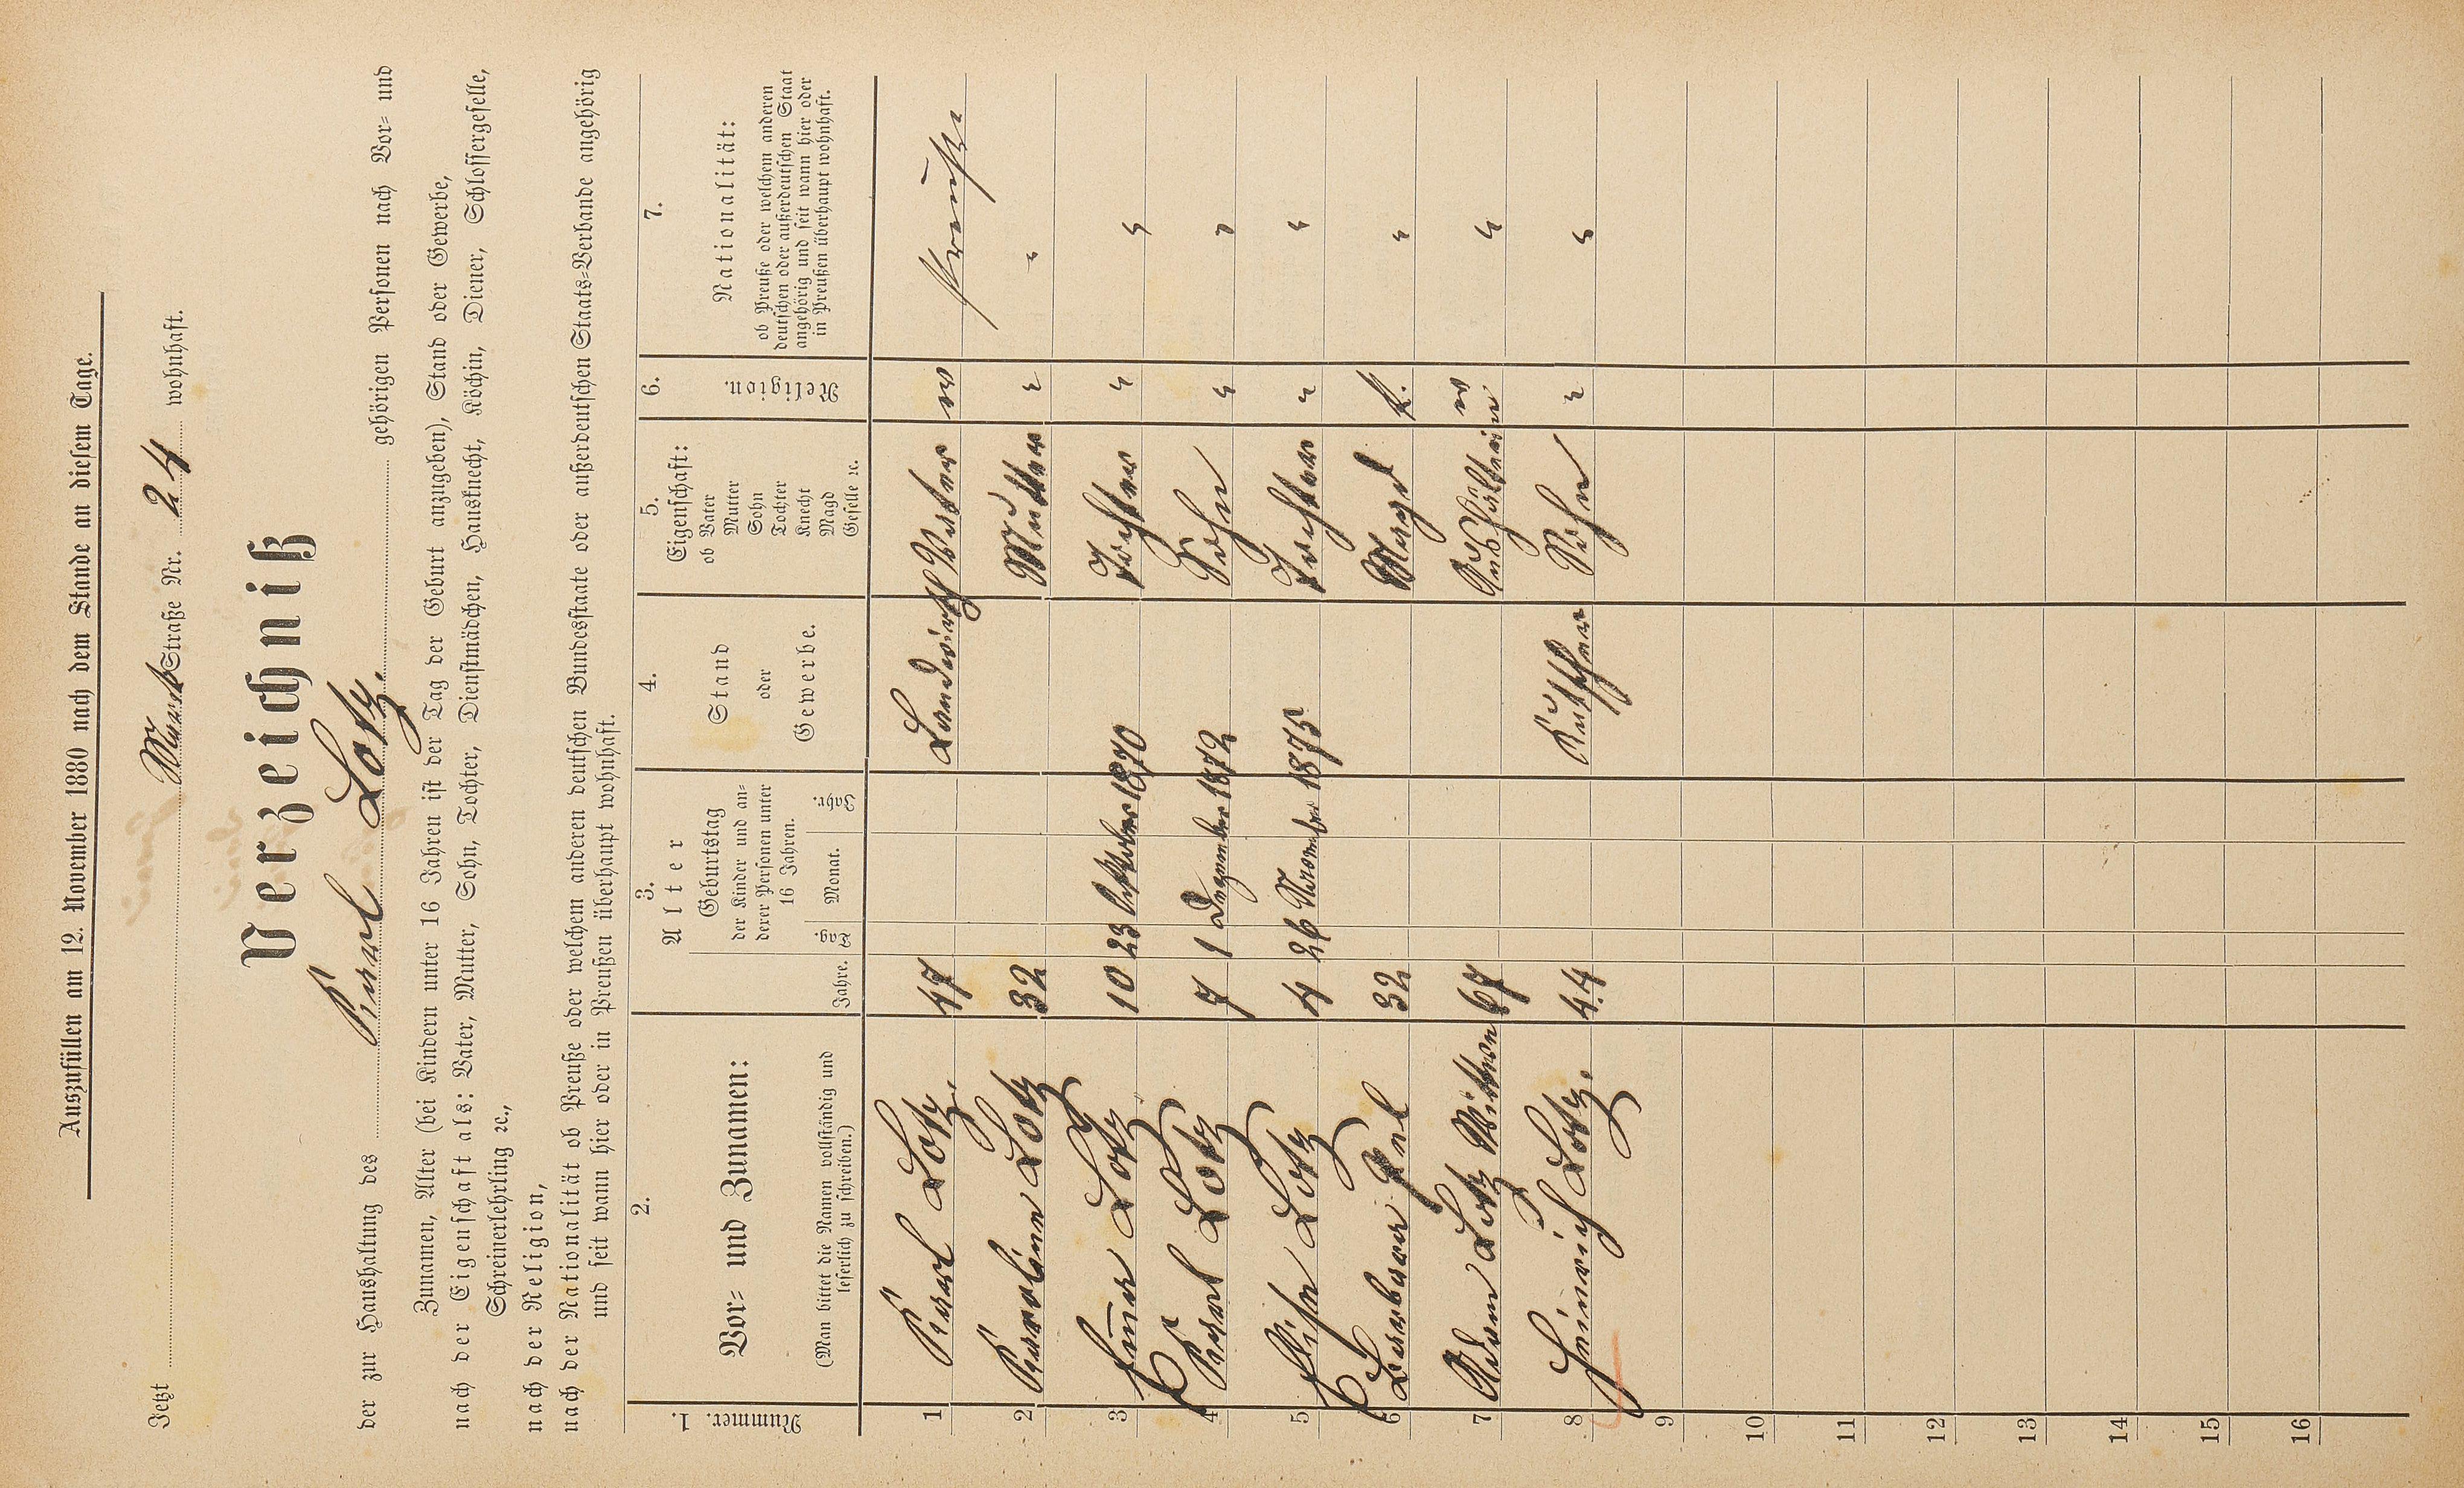 Auszufüllen am 12. November 1880 nach dem Stande an diesem Tage.
Jetzt Markt Straße Nr. 24 wohnhaft.
Verzeichniß
der zur Haushaltung des Karl Lotz. gehörigen Personen nach Vor- und
Zunamen, Alter (bei Kindern unter 16 Jahren ist der Tag der Geburt anzugeben), Stand oder Gewerbe,
nach der Eigenschaft als: Vater, Mutter, Sohn, Tochter, Dienstmädchen, Hausknecht, Köchin, Diener, Schlossergeselle,
Schreinerlehrling ꝛc.,
nach der Religion,
nach der Nationalität ob Preuße oder welchem anderen deutschen Bundesstaate oder außerdeutschen Staats-Verbande angehörig
und seit wann hier oder in Preußen überhaupt wohnhaft.
1. Nummer.
2. Vor- und Zunamen:
(Man bittet die Namen vollständig und
leserlich zu schreiben.)
3. Alter
Jahre.
Geburtstag
der Kinder und an-
derer Personen unter
16 Jahren.
Tag. Monat. Jahr.
4. Stand
oder
Gewerbe.
5. Eigenschaft:
ob Vater
Mutter
Sohn
Tochter
Knecht
Magd
Geselle ꝛc.
6. Religion.
7. Nationalität:
ob Preuße oder welchem anderen
deutschen oder außerdeutschen Staat
angehörig und seit wann hier oder
in Preußen überhaupt wohnhaft.
1 Karl Lotz. 47 Landwirth Vater ev Preuße
2 Karoline Lotz 32 Mutter " "
3 Lotz 10 23 October 1870 Tochter " "
4 Karl Lotz 7 1 Dezember 1872 Sohn " "
5 Elise Lotz 4 26 November 1875 Tochter " "
6 Barbara 32 Magd k. "
7 Adam Lotz Wittwe 67 ev "
8 Heinrich Lotz. 44 Kutscher Sohn " "
9
10
11
12
13
14
15
16